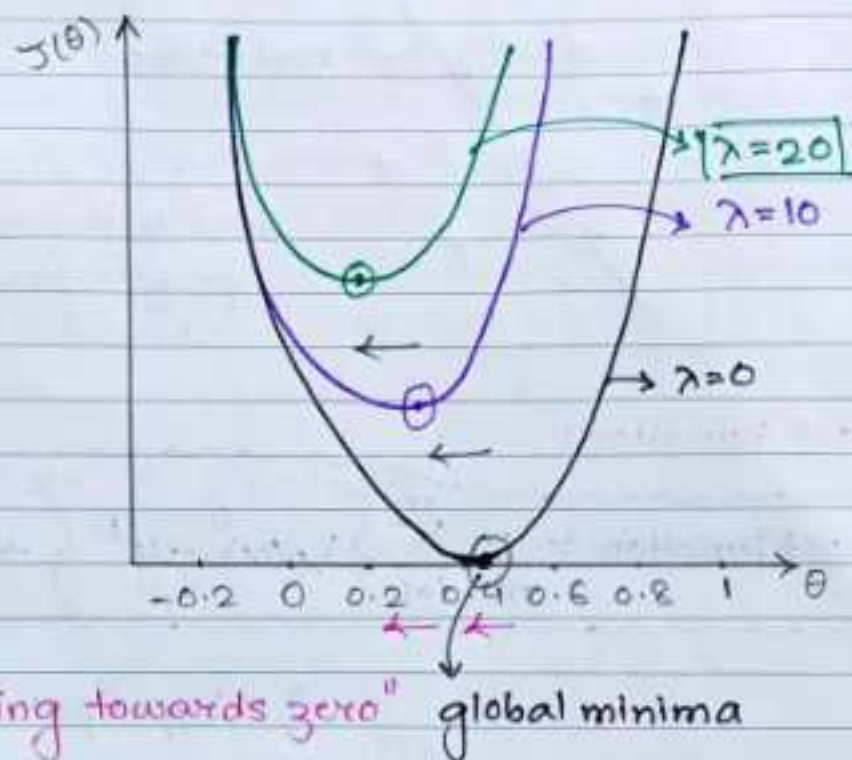 J(θ)
λ=20
λ=10
λ=0
-0.2 0 0.2 0.4 0.6 0.8 1 θ
ing towards zero" global minima